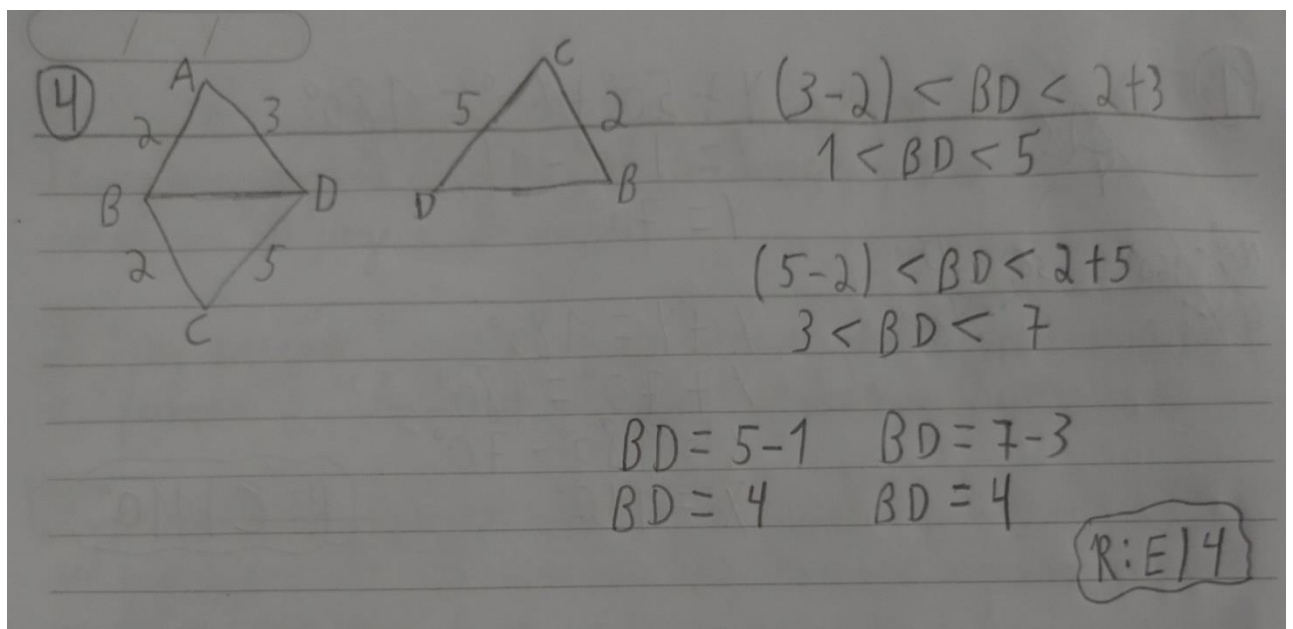 4
A
2 3
B D
2 5
C
C
5 2
D B
(3-2) < BD < 2+3
1 < BD < 5
(5-2) < BD < 2+5
3 < BD < 7
BD = 5-1 BD = 7-3
BD = 4 BD = 4
R: E) 4